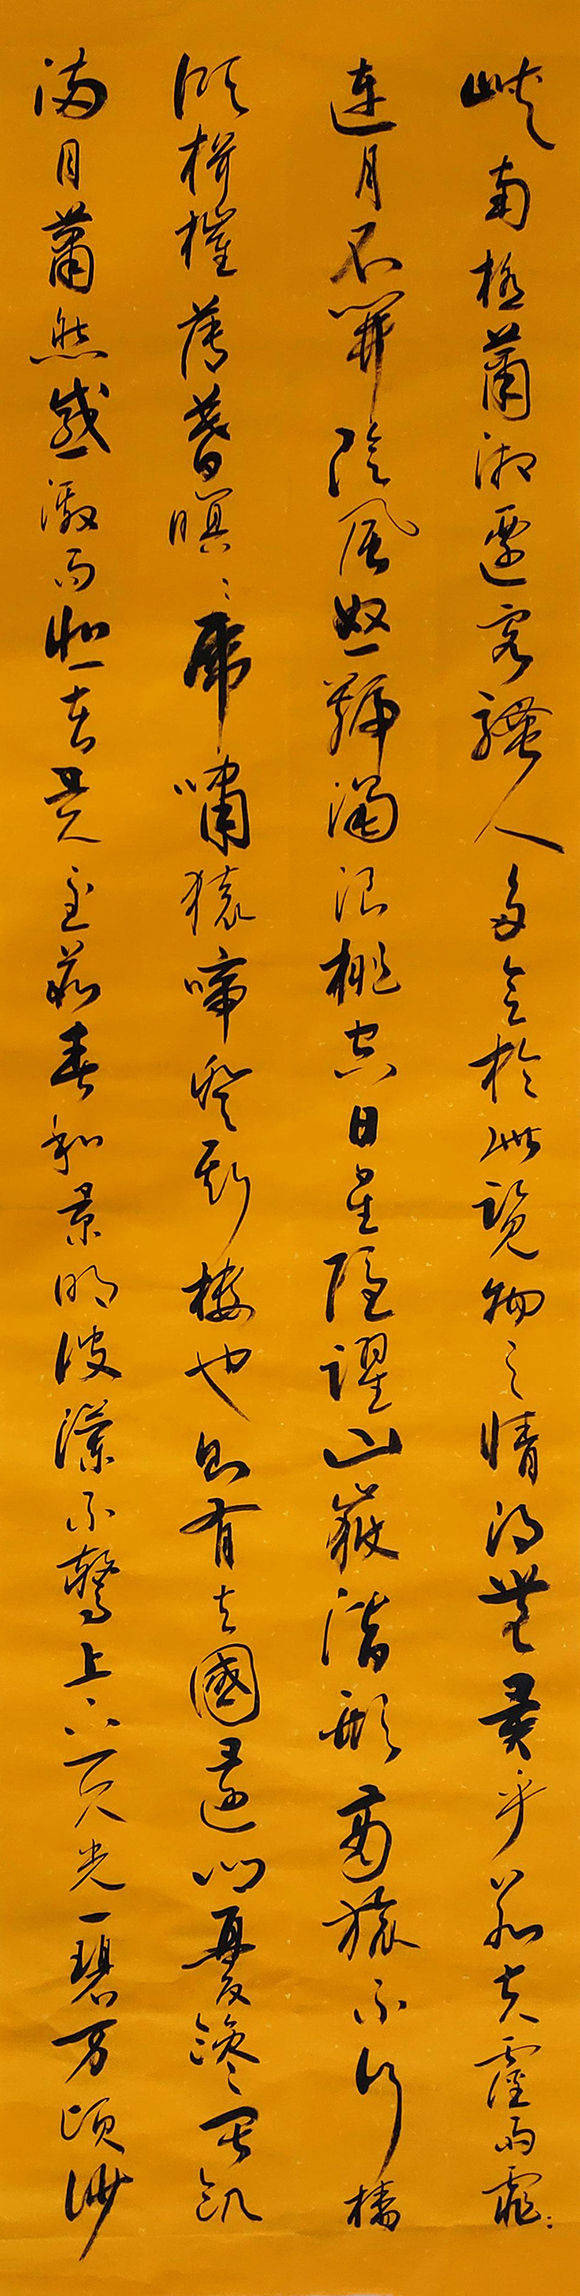 峽南極蕭湘遷客騷人多會於此覽物之情得無異乎若夫霪雨霏〻
連月不開陰風怒號濁浪排空日星隱曜山嶽潛形商旅不行檣
傾楫摧薄暮暝〻虎嘯猿啼登斯樓也則有去國還鄉憂讒畏譏
滿目蕭然感激而悲者矣至若春和景明波瀾不驚上下天光一碧万頃沙